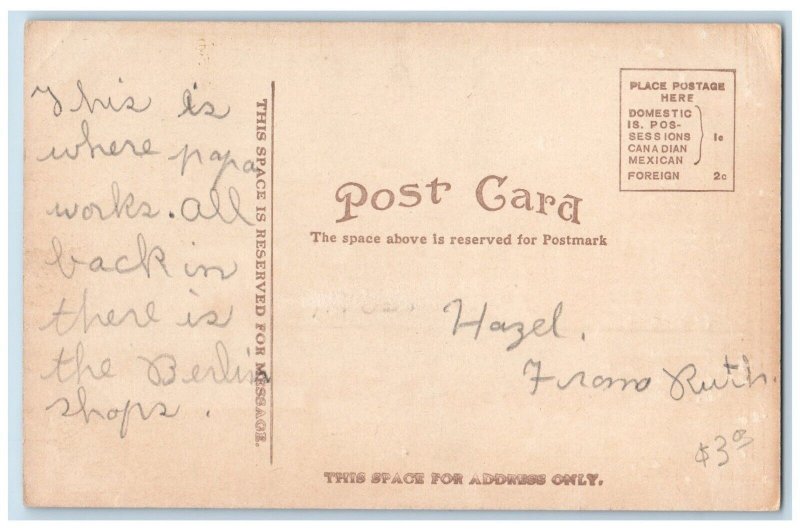 This is
where papa
works. All
back in
there is
the Berlin
shops.
THIS SPACE IS RESERVED FOR MESSAGE.
PLACE POSTAGE
HERE
DOMESTIC
IS. POS-
SESSIONS 1c
CANADIAN
MEXICAN
FOREIGN 2c
Post Card
The space above is reserved for Postmark
Hazel.
From Ruth.
$3.00
THIS SPACE FOR ADDRESS ONLY.